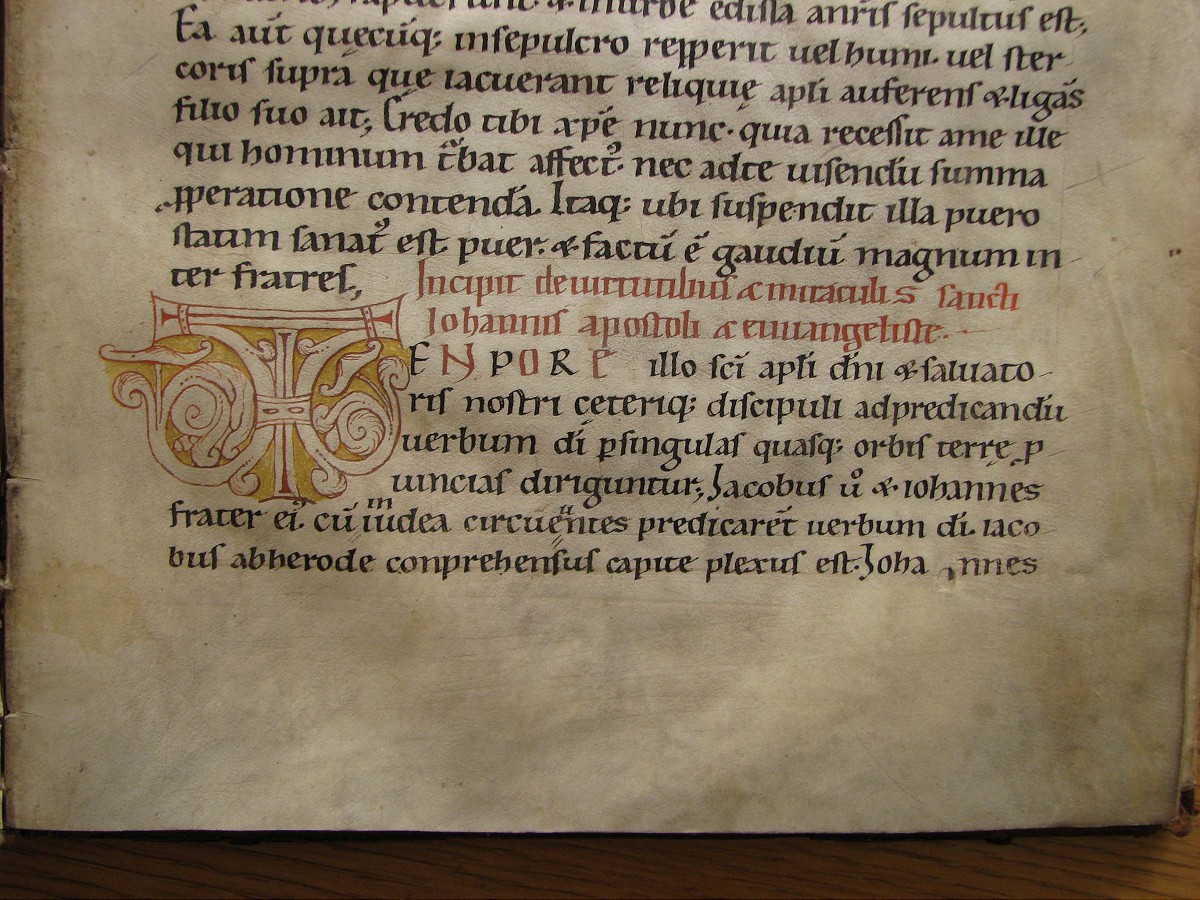 & inurbe edissa anrīs sepultus est;
Ea aūt quęcūq; insepulcro repperit uel humi. uel ster
coris supra que iacuerant reliquię apłi auferens & ligās
filio suo ait; Credo tibi xpē nunc. quia recessit ame ille
qui hominum t̄bat affect᷒. nec adte uisendū summa
pperatione contendā. Itaq; ubi suspendit illa puero
statim sanat᷒ est puer. & factū ē gaudiū magnum in
ter fratres,
Incipit de uirtutibus & miraculis sancti
Iohannis apostoli & euuangeliste.
TENPORE illo scī apłi dn̄i & saluato
ris nostri cęteriq; discipuli adpredicandū
uerbum dī ꝑsingulas quasq; orbis terrę ꝓ
uincias diriguntur; Jacobus ů & iohannes
frater ei᷒. cū in iudea circuentes predicarēt uerbum dī. iaco
bus abherode conprehensus capite plexus est. Joha nnes